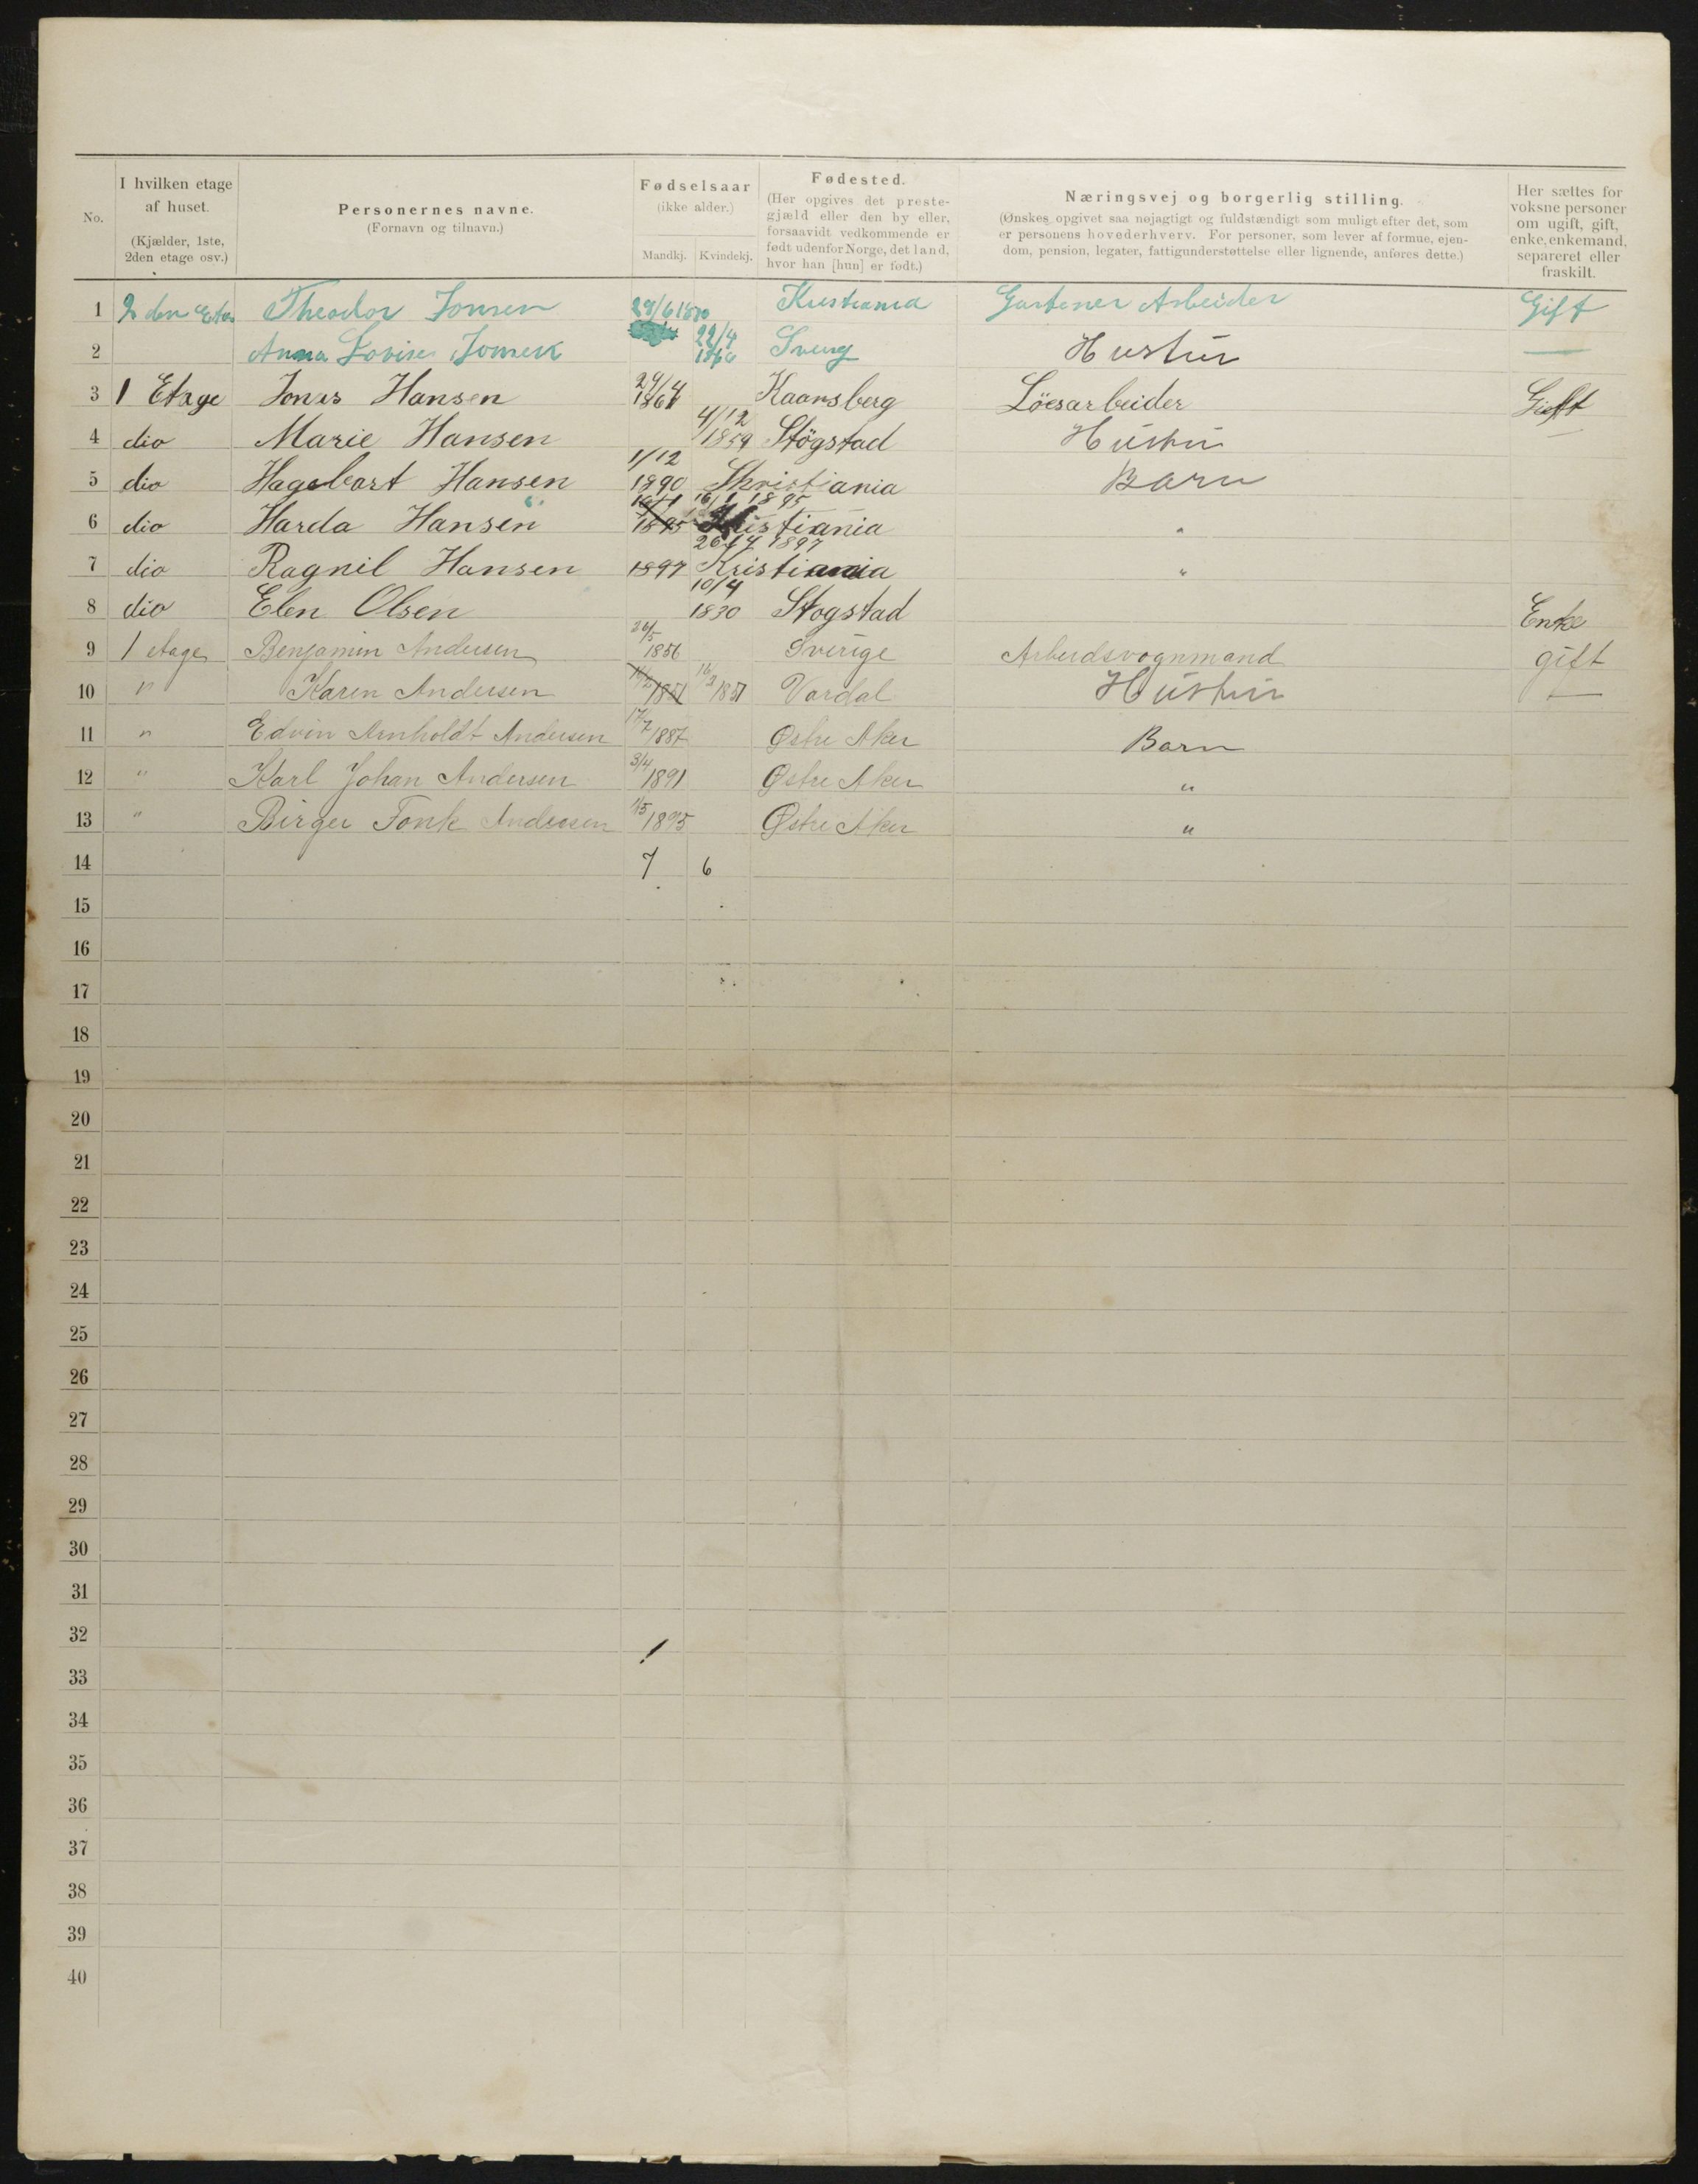 No. I hvilken etage af huset. (Kjælder, 1ste, 2den etage osv.) Personernes navne. (Fornavn og tilnavn.) Fødselsaar (ikke alder.) Mandkj. Kvindekj. Fødested. (Her opgives det prestegjæld eller den by eller, forsaavidt vedkommende er født udenfor Norge, det land, hvor han [hun] er født.) Næringsvej og borgerlig stilling. (Ønskes opgivet saa nøjagtigt og fuldstændigt som muligt efter det, som er personens hovederhverv. For personer, som lever af formue, ejendom, pension, legater, fattigunderstøttelse eller lignende, anføres dette.) Her sættes for voksne personer om ugift, gift, enke, enkemand, separeret eller fraskilt.
1 2 den Etas Theodor Jonsen 29/6 1870 Kristiania Gartener Arbeider Gift
2 Anna Lovise Jonsen 22/4 Sverig Hustru —
3 1 Etage Jonas Hansen 29/4 1861 Kaansberg Löesarbeider Gift
4 dio Marie Hansen 4/12 1859 Stögstad Hustru —
5 dio Hagebart Hansen 1/12 1890 Khristiania Barn
6 dio Harda Hansen 1895 16/1 1895 Kristiania "
7 dio Ragnil Hansen 1897 26/7 1897 Kristiania "
8 dio Elen Olsen 10/4 1830 Stogstad Enke
9 1 etage Benjamin Andersen 26/5 1856 Sverige Arbeidsvognmand gift
10 " Karen Andersen 16/2 1851 16/2 1851 Vardal Hustru —
11 " Edvin Arnholdt Andersen 17/7 1887 Østre Aker Barn
12 " Karl Johan Andersen 3/4 1891 Østre Aker "
13 " Birger Fonk Andersen 1/5 1895 Østre Aker "
14 7 6
15
16
17
18
19
20
21
22
23
24
25
26
27
28
29
30
31
32
33
34
35
36
37
38
39
40